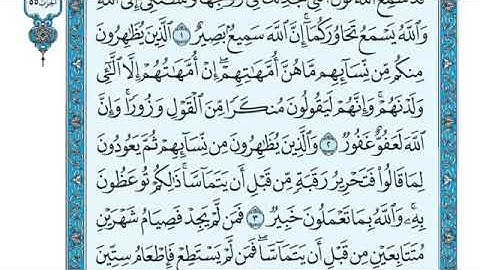 قَدْ سَمِعَ ٱللَّهُ قَوْلَ ٱلَّتِي تُجَٰدِلُكَ فِي زَوْجِهَا وَتَشْتَكِيٓ إِلَى ٱللَّهِ
وَٱللَّهُ يَسْمَعُ تَحَاوُرَكُمَآ إِنَّ ٱللَّهَ سَمِيعُۢ بَصِيرٌ ١ ٱلَّذِينَ يُظَٰهِرُونَ
مِنكُم مِّن نِّسَآئِهِم مَّا هُنَّ أُمَّهَٰتِهِمْۖ إِنْ أُمَّهَٰتُهُمْ إِلَّا ٱلَّٰٓـِٔي
وَلَدْنَهُمْۚ وَإِنَّهُمْ لَيَقُولُونَ مُنكَرًا مِّنَ ٱلْقَوْلِ وَزُورًاۚ وَإِنَّ
ٱللَّهَ لَعَفُوٌّ غَفُورٌ ٢ وَٱلَّذِينَ يُظَٰهِرُونَ مِن نِّسَآئِهِمْ ثُمَّ يَعُودُونَ
لِمَا قَالُوا۟ فَتَحْرِيرُ رَقَبَةٍ مِّن قَبْلِ أَن يَتَمَآسَّاۚ ذَٰلِكُمْ تُوعَظُونَ
بِهِۦۚ وَٱللَّهُ بِمَا تَعْمَلُونَ خَبِيرٌ ٣ فَمَن لَّمْ يَجِدْ فَصِيَامُ شَهْرَيْنِ
مُتَتَابِعَيْنِ مِن قَبْلِ أَن يَتَمَآسَّاۖ فَمَن لَّمْ يَسْتَطِعْ فَإِطْعَامُ سِتِّينَ